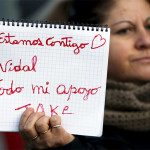 Estamos Contigo
Vidal
todo mi apoyo
JAKE